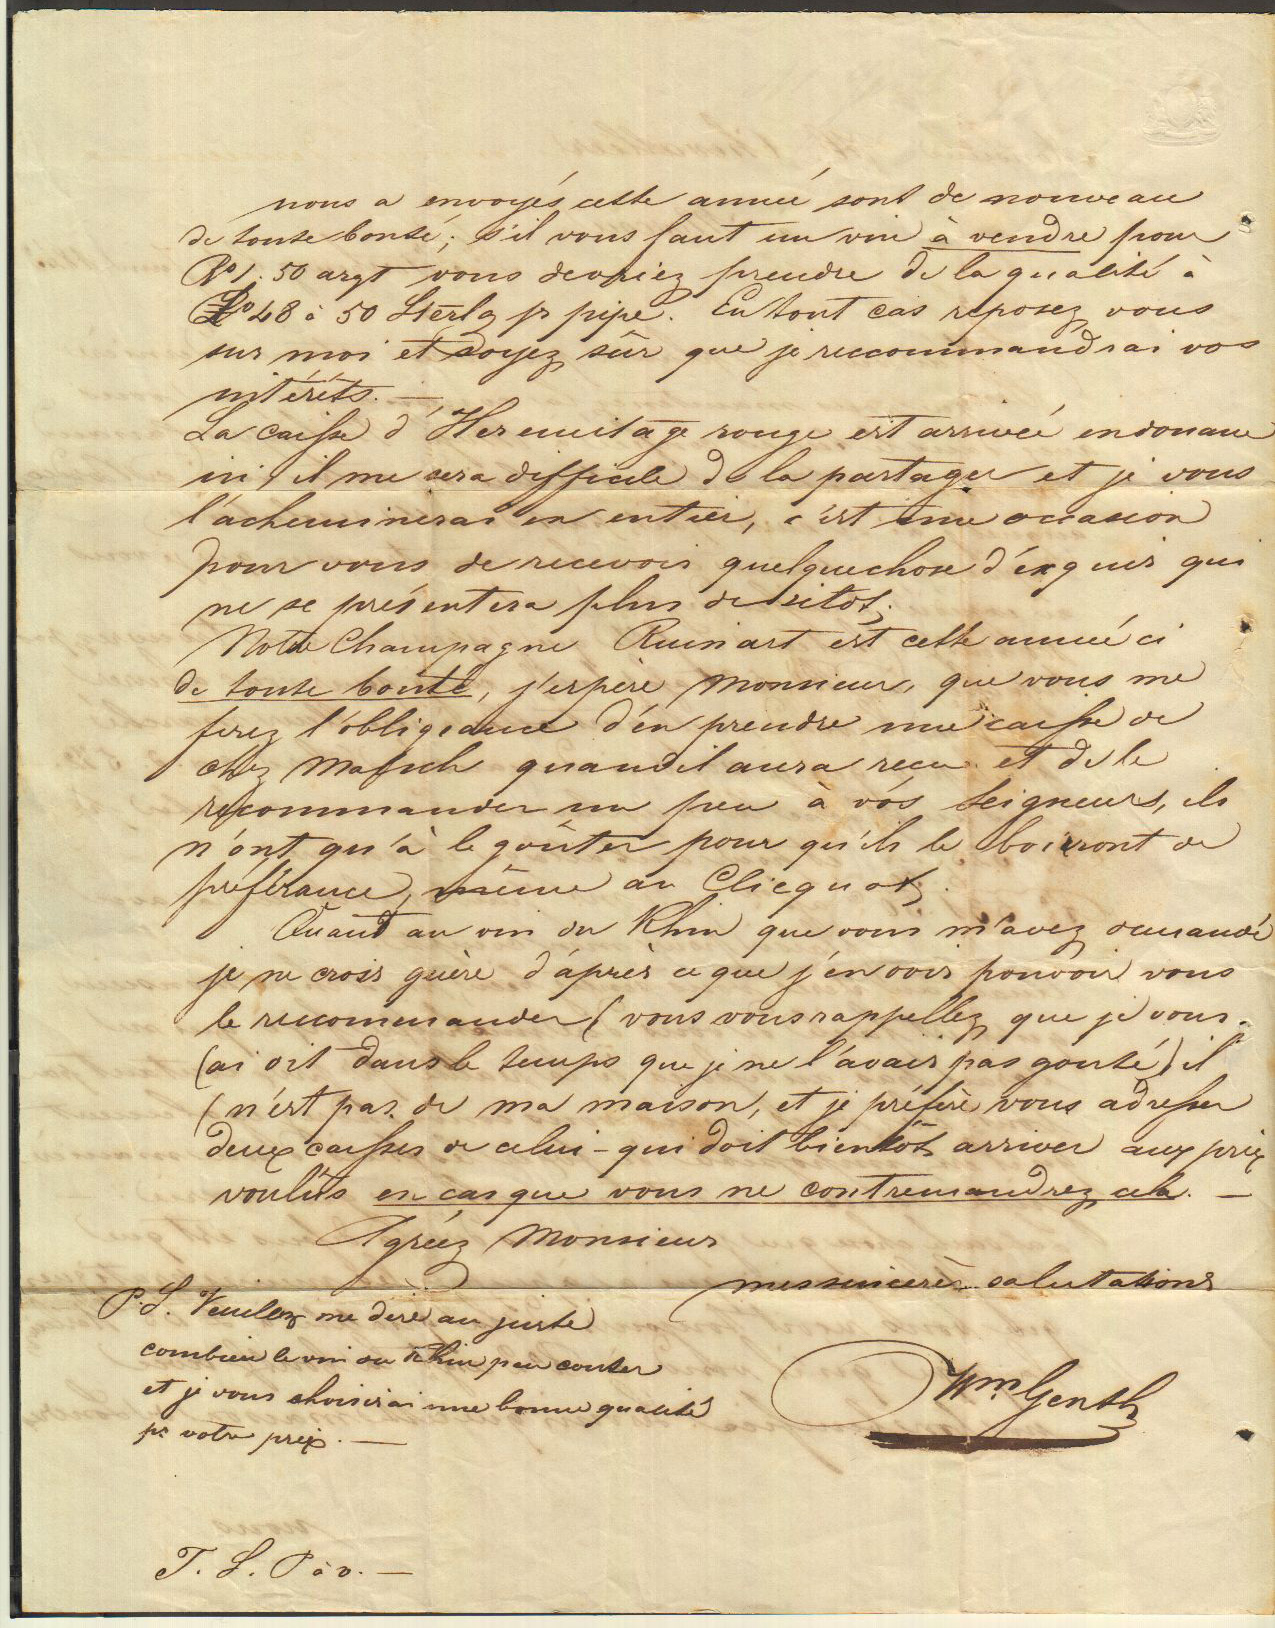 nous a envoyés cette année sont de nouveau
de toute bonté; s'il vous faut un vin à vendre pour
50 argt vous devriez prendre de la qualité à
48 à 50 Sterlg p pipe. En tout cas reposez vous
sur moi et soyez sûr que je reccommandrai vos
intérêts. —
La caisse d'Hermitage rouge est arrivée en douane
ici, il me sera difficile de la partager et je vous
l'acheminerai en entier, c'est une occasion
pour vous de recevoir quelquechose d'exquis qui
ne se présentera plus de sitot.
Notre Champagne Ruinart est cette année ci
de toute bonté, j'espère Monsieur, que vous me
ferez l'obligeance d'en prendre une caisse de
chez quand il aura reçu et de le
recommander un peu à vos Seigneurs, ils
n'ont qu'à le goûter pour qu'ils le boiront de
préférance, même au Clicquot.
Quant au vin du Rhin que vous m'avez demandé
je ne crois guère d'après ce que j'en vois pouvoir vous
le recommander (vous vous rappellez que je vous
(ai dit dans le temps que je ne l'avais pas gouté) il
(n'est pas de ma maison, et je préfère vous adresser
deux caisses de celui-qui doit bientôt arriver aux prix
voulûs en cas que vous ne contremandrez cela. —
Agréez Monsieur
mes sincerès salutations
P. S. Veuillez me dire au juste
combien le vin du Rhin peu couter
et je vous choisirai une bonne qualité
pr votre prix. —
Wm Genth
T. S. P à v. —